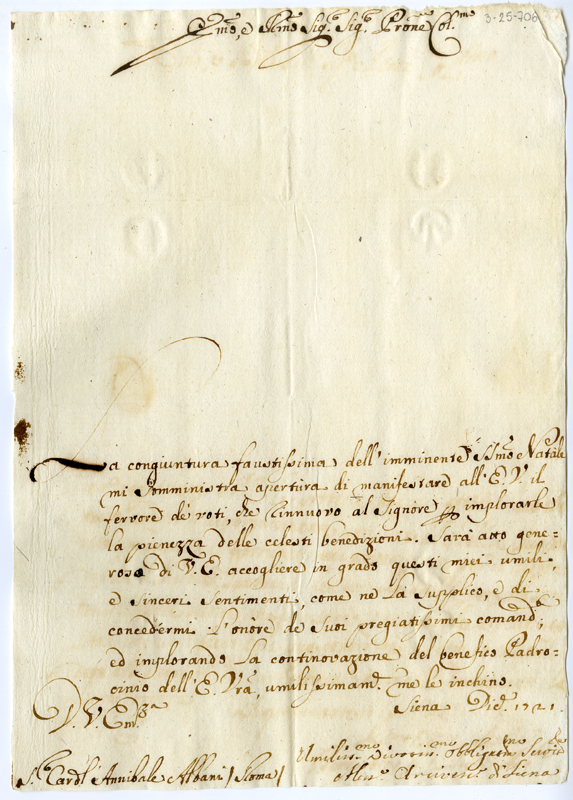 3-25-706
Em̃o, e Rm̃o Sig.r Sig.r Prõne Col.mo
La congiuntura faustissima dell'imminente S.mo Natale
mi somministra apertura di manifestare all'E. V. il
fervore de' voti, che rinnuovo al Signore per implorarle
la pienezza delle celesti benedizioni. Sarà atto gene=
roso di V. E. accogliere in grado questi miei umili,
e sinceri sentimenti, come ne La supplico, e di
concedermi l'onòre de suoi pregiatissimi comandi,
ed implorando la continovazione del benefico Padro=
cinio dell'E. Vrã, umilissimam.te me le inchino.
D. V. Em.za Siena Dic. 1721.
Umiliss.mo Divotis.mo Obbligatm̃o Servid.re
S. Card.l Annibale Albani / Roma / Arcivesc. di Siena